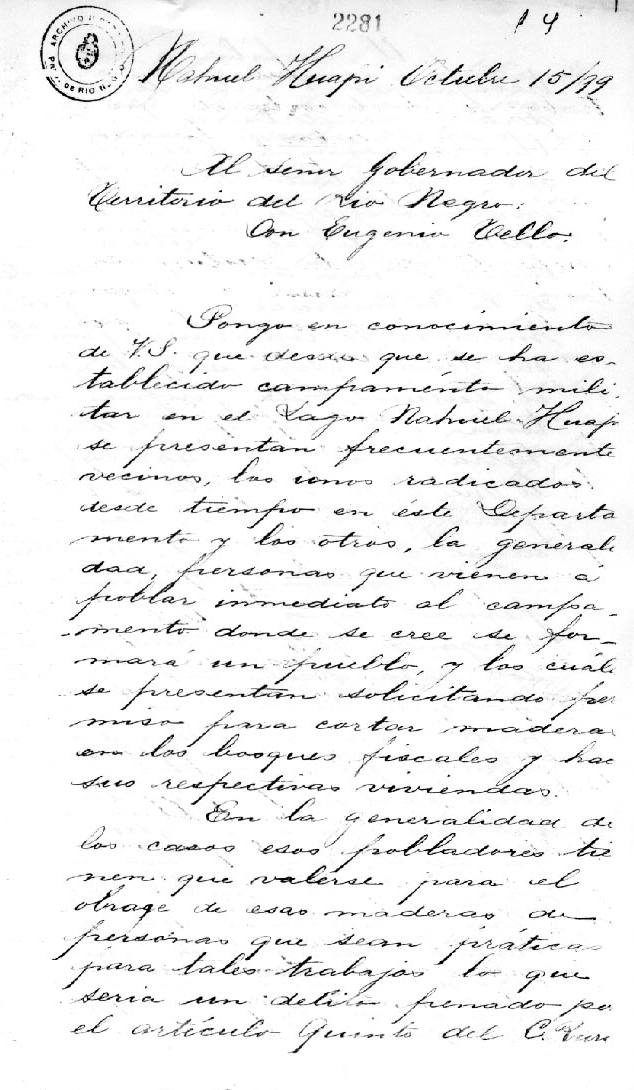 2281
14
Nahuel Huapi Octubre 15/99
Al señor Gobernador del
Territorio del Rio Negro:
Don Eugenio Tello.
Pongo en conocimiento
de V.S. que desde que se ha es-
tablecido campaménto mili-
tar en el Lago Nahuel Huapi
se presentan frecuentemente
vecinos, los unos radicados
desde tiempo en éste Departa
mento y los otros, la generali
dad, personas que vienen á
poblar inmediato al campa-
mento donde se cree se for-
mará un pueblo, y los cuál
se presentan solicitando per
miso para cortar madera
en los bosques fiscales y hac
sus respectivas viviendas.
En la generalidad de
los casos esos pobladores tie
nen que valerse para el
obrage de esas maderas de
personas que sean práticas
para tales trabajos lo que
seria un delito penado po
el artículo Quinto del C. Rur